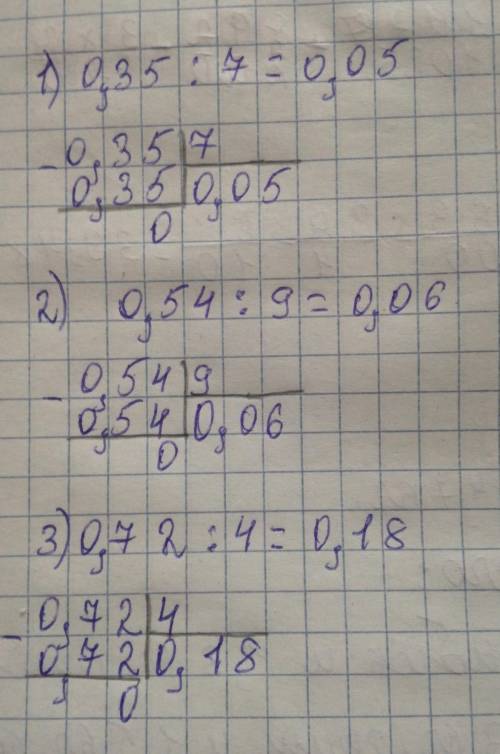 1) 0,35 : 7 = 0,05
- 0,35 7
0,35 0,05
0
2) 0,54 : 9 = 0,06
- 0,54 9
0,54 0,06
0
3) 0,72 : 4 = 0,18
- 0,72 4
0,72 0,18
0